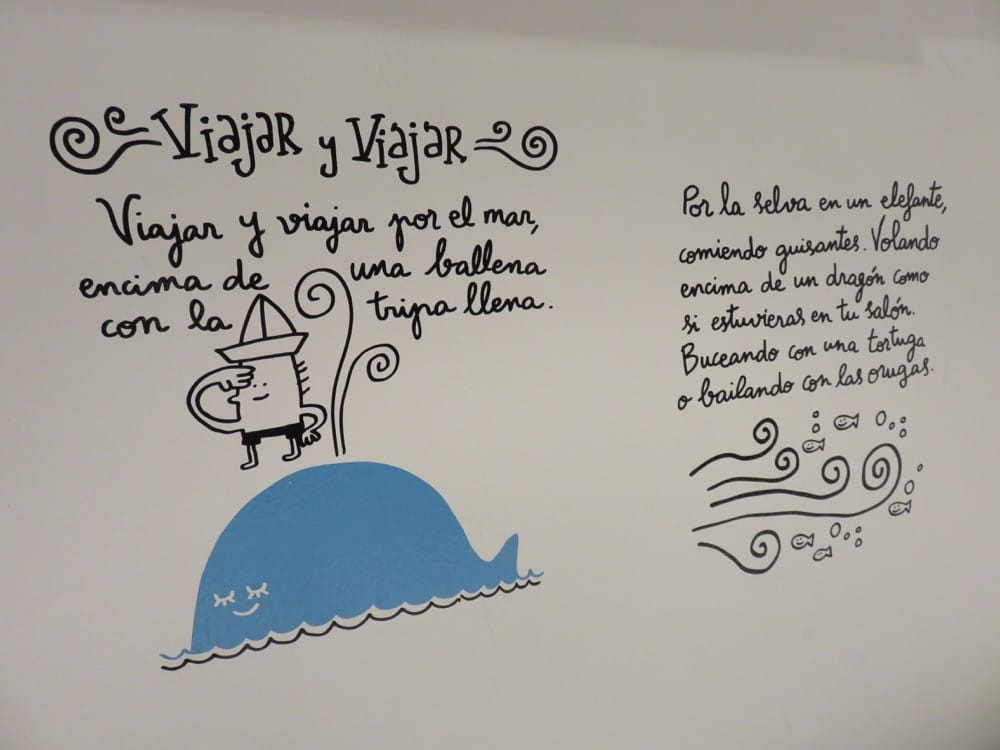 Viajar y Viajar
Viajar y viajar por el mar,
encima de una ballena
con la tripa llena.
Por la selva en un elefante,
comiendo guisantes. Volando
encima de un dragón como
si estuvieras en tu salón.
Buceando con una tortuga
o bailando con las orugas.